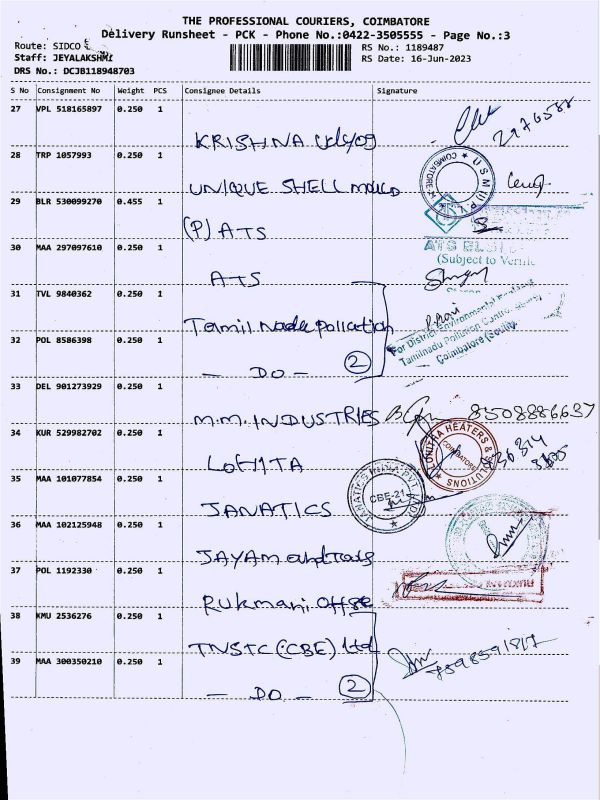 THE PROFESSIONAL COURIERS, COIMBATORE
Delivery Runsheet - PCK - Phone No.:0422-3505555 - Page No.:3
Route: SIDCO
RS No.: 1189487
Staff: JEYALAKSHMI
RS Date: 16-Jun-2023
DRS No.: DCJB118948703
S No Consignment No Weight PCS Consignee Details Signature
27 VPL 518165897 0.250 1
KRISHNA Udyog
28 TRP 1057993 0.250 1
UNIQUE SHELL mould
COIMBATORE
29 BLR 530099270 0.455 1
(P) ATS
30 MAA 297097610 0.250 1
ATS
(Subject to
31 TVL 9840362 0.250 1
Tamil Nadu Pollution
For District Environmental Engineer
Tamilnadu Pollution Control Board
Coimbatore (South)
32 POL 8586398 0.250 1
- DO - 2
33 DEL 901273929 0.250 1
M.M. INDUSTRIES
8508886637
34 KUR 529982702 0.250 1
LOHITA
LOHITRA HEATERS & SOLUTIONS
COIMBATORE
35 MAA 101077854 0.250 1
JANATICS
JANATICS INDIA PVT. LTD
CBE-21
36 MAA 102125948 0.250 1
JAYAM
37 POL 1192330 0.250 1
Rukmani Offse
38 KMU 2536276 0.250 1
TNSTC (CBE) Ltd
39 MAA 300350210 0.250 1
- DO - 2